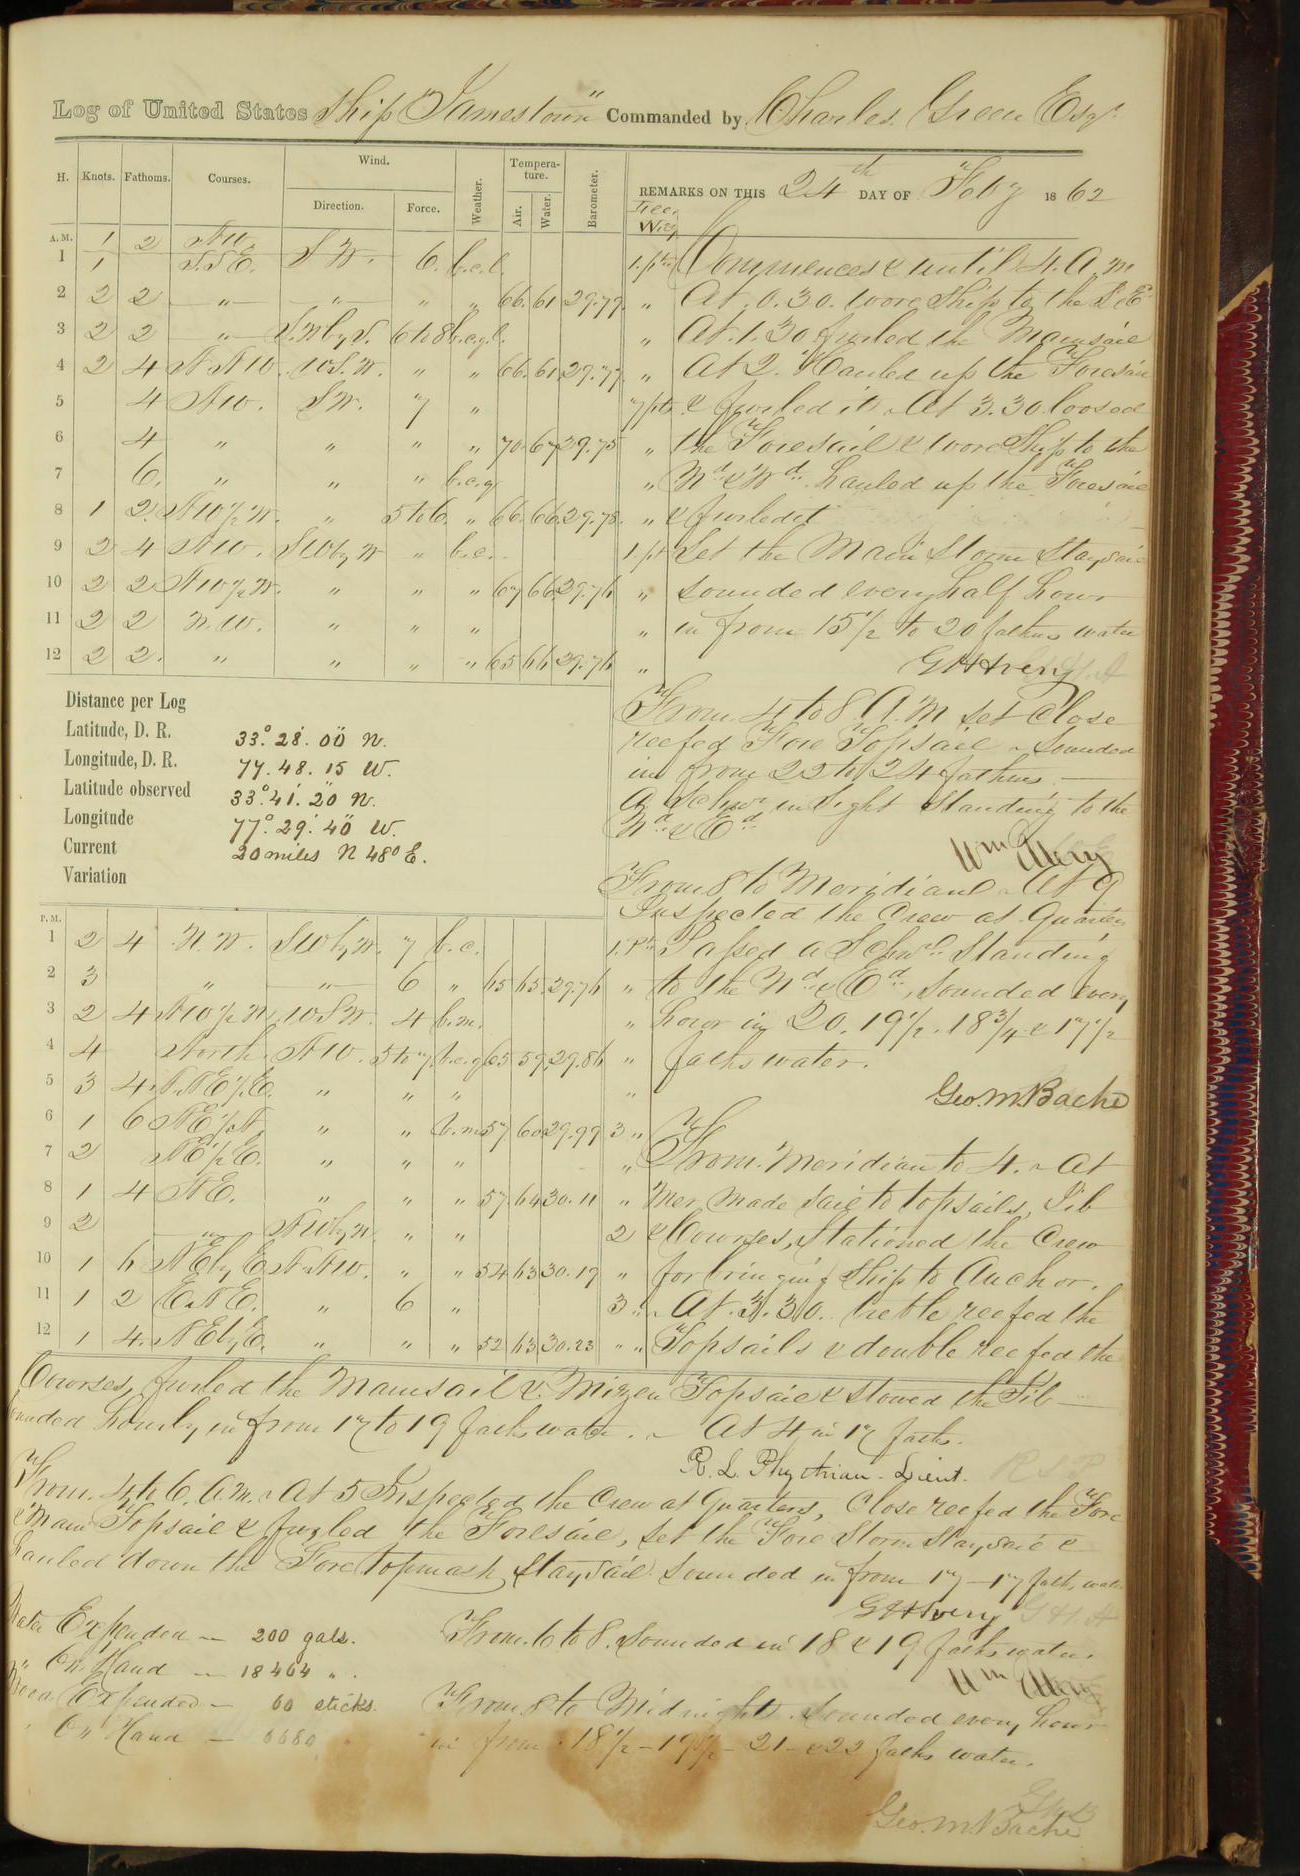 Log of United States Ship "Jamestown" Commanded by Charles Green Esqr.
H. Knots. Fathoms. Courses. Wind. Direction. Force. Weather. Temperature. Air. Water. Barometer.
REMARKS ON THIS 24th DAY OF Feby 1862
Lee Way
A.M.
1 1 2 NW. S.W. 6. b.c.l. 1.pt.
1 S.S.E.
2 2 2 " " " " 66. 61 29.79. "
3 2 2 " S.W.by S. 6 to 8 b.c.q.l. "
4 2 4 N.NW. W.S.W. " " 66. 61. 29.77 "
5 4 NW. S.W. 7 " 7 pts
6 4 " " " " 70. 67 29.75 "
7 6. " " " b.c.q. "
8 1 2. NW 1/2 W. " 5 to 6. " 66. 66. 29.78. "
9 2 4 NW. SW by W " b.c. 1.pt
10 2 2 NW 1/2 W. " " " 67 66. 29.76 "
11 2 2 N.W. " " " "
12 2 2. " " " " 65 66 29.76 "
Commences & until 4. A.M
At 0.30. wore Ship to the S.E
At 1.30 furled the Mainsail
At 2. Hauled up the Foresail
& furled it. At 3.30 loosed
the Foresail & wore Ship to the
Nd & Wd. hauled up the Foresail
& furled it
Set the Main Storm Staysail
sounded every half hour
in from 15 1/2 to 20 fathms water
From 4 to 8 A.M set Close
reefed Fore Topsail. Sounded
in from 22 to 24 fathms.
A Schnr in Sight Standing to the
Nd & Ed
Distance per Log
Latitude, D. R. 33° 28' 00" N.
Longitude, D. R. 77. 48. 15 W.
Latitude observed 33° 41' 20" N.
Longitude 77° 29' 40" W.
Current 20 miles N 48° E.
Variation
From 8 to Meridian. At 9
Inspected the Crew at Quarters
Passed a Schnr Standing
to the Nd & Ed, sounded every
hour in 20. 19 1/2. 18 3/4 & 17 1/2
faths water.
Geo. M. Bache
P.M.
1 2 4 N.W. SW by W. 7 b.c. 1.Pt
2 3 " " 6 " 65 65. 29.76 "
3 2 4 NW 1/2 W. W.S.W. 4 b.m. "
4 4 North. NW. 5 to 7 b.c.q 65 59. 29.86 "
5 3 4 N.NE 1/2 E. " " " "
6 1 6 NE 1/2 N. " " b.m. 57 60 29.99 3 "
7 2 NE 1/2 E. " " " "
8 1 4 NE. " " " 57 64 30.11 "
9 2 " NW by N " " 2
10 1 6 NE by E N.NW. " " 54 63 30.19 "
11 1 2 E.NE. " 6 " 3 "
12 1 4. NE by E. " " " 52 63 30.23 " "
From Meridian to 4. At
Mer made sail to topsails, Jib
& Courses, Stationed the Crew
for bringing Ship to Anchor.
At 3.30. treble reefed the
Topsails & double reefed the
Courses, furled the Mainsail & Mizen Topsail & stowed the Jib
Sounded hourly in from 17 to 19 faths water. At 4 in 17 faths.
R. L. Phythian. Lieut.
From 4 to 6. A.M. At 5 Inspected the Crew at Quarters, Close reefed the Fore
& Main Topsail & furled the Foresail, set the Fore Storm Staysail &
hauled down the Fore topmast Staysail Sounded in from 17 - 17 faths water
Water Expended — 200 gals. From 6 to 8. Sounded in 18 & 19 faths water.
" On Hand — 18464 "
Wood Expended — 60 sticks. From 8 to Midnight. Sounded every hour
" On Hand — 6680 in from 18 1/2 - 19 1/2 - 21 - & 22 faths water.
Geo. M. Bache